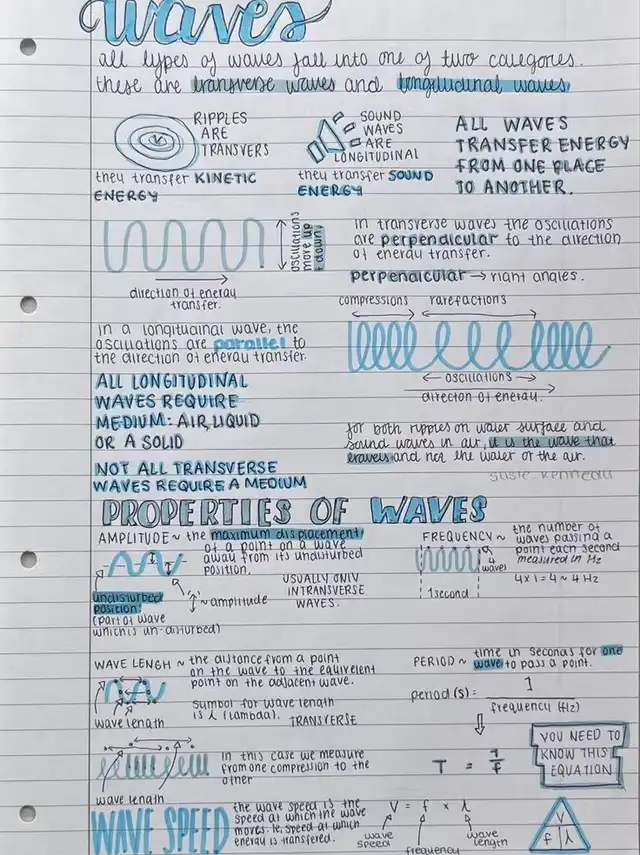 waves
all types of waves fall into one of two categories.
these are transverse waves and longitudinal waves
RIPPLES
ARE
TRANSVERS
they transfer KINETIC
ENERGY
SOUND
WAVES
ARE
LONGITUDINAL
they transfer SOUND
ENERGY
ALL WAVES
TRANSFER ENERGY
FROM ONE PLACE
TO ANOTHER.
oscillations
move up
+ down
direction of energy
transfer.
in transverse waves the oscillations
are perpendicular to the direction
of energy transfer.
perpendicular → right angles.
compressions rarefactions
← oscillations →
direction of energy.
in a longitudinal wave, the
oscillations are parallel to
the direction of energy transfer.
ALL LONGITUDINAL
WAVES REQUIRE
MEDIUM: AIR, LIQUID
OR A SOLID
NOT ALL TRANSVERSE
WAVES REQUIRE A MEDIUM
for both ripples on water surface and
sound waves in air, it is the wave that
travels and not the water or the air.
susie kennedy
PROPERTIES OF WAVES
AMPLITUDE ~ the maximum displacement
of a point on a wave
away from its undisturbed
position.
undisturbed
position!
(part of wave
which is un-disturbed)
~ amplitude
USUALLY ONLY
IN TRANSVERSE
WAVES.
FREQUENCY ~ the number of
waves passing a
point each second
measured in Hz
4
waves
1 second
4 x 1 = 4 ~ 4 Hz
WAVE LENGH ~ the distance from a point
on the wave to the equivelent
point on the adjacent wave.
symbol for wave length
is λ (lambda). TRANSVERSE
wave length
in this case we measure
from one compression to the
other
wave length
PERIOD ~ time in seconds for one
wave to pass a point.
period (s) = 1
frequency (Hz)
T = 1/f
YOU NEED TO
KNOW THIS
EQUATION
WAVE SPEED
the wave speed is the
speed at which the wave
moves. ie, speed at which
energy is transfered.
V = f x λ
wave
speed
frequency
wave
length
V
f λ